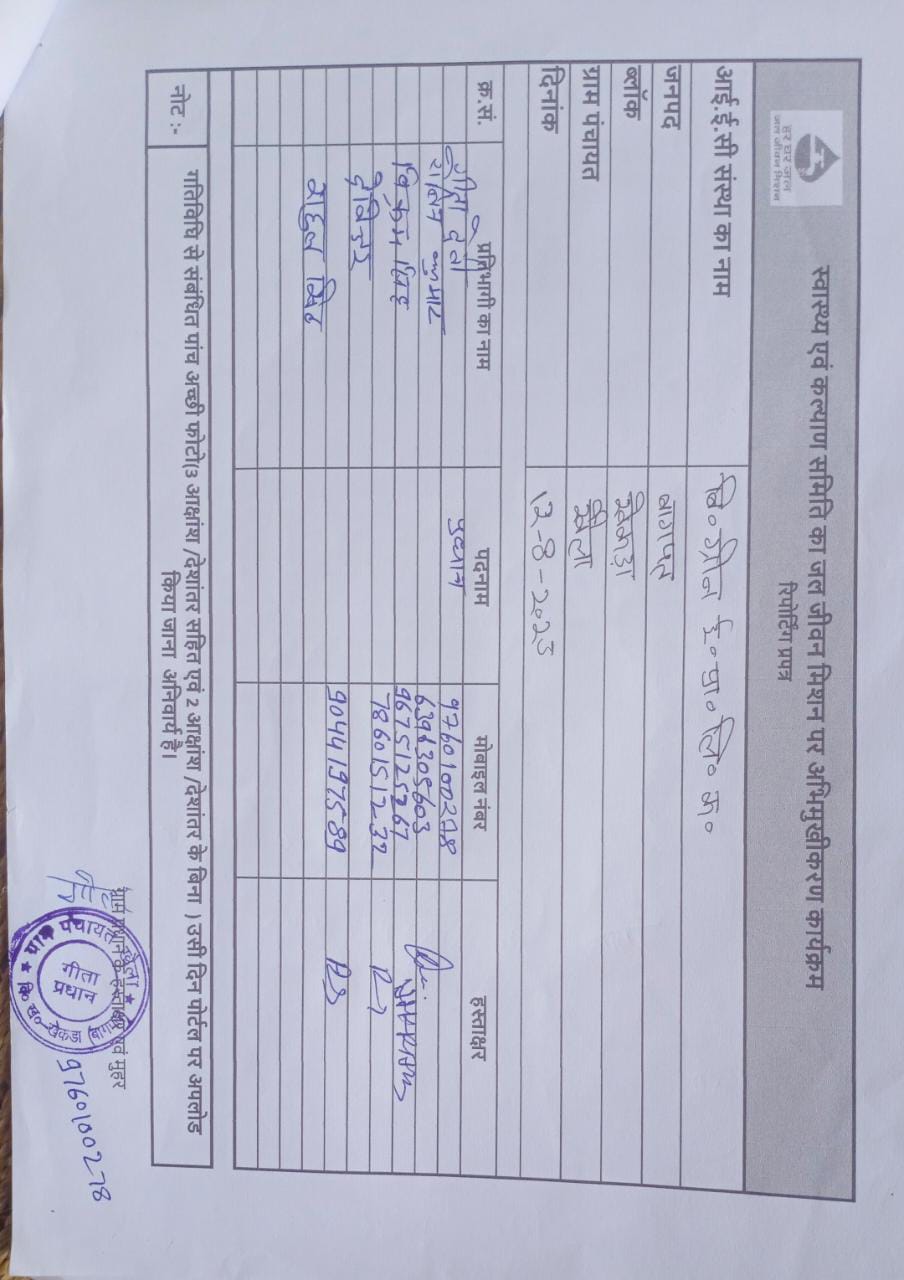 हर घर जल
जल जीवन मिशन
स्वास्थ्य एवं कल्याण समिति का जल जीवन मिशन पर अभिमुखीकरण कार्यक्रम
रिपोर्टिंग प्रपत्र
आई.ई.सी संस्था का नाम
जनपद बागपत
ब्लॉक खेकड़ा
ग्राम पंचायत खैला
दिनांक 12-8-2023
क्र.सं. प्रतिभागी का नाम पदनाम मोबाइल नंबर हस्ताक्षर
गीता देवी प्रधान 9760100278
कुमार 6396305603
विक्रम सिंह 9675125267
रविन्द्र 7860151232
राहुल सिंह 9044197589 RS
नोट :- गतिविधि से संबंधित पांच अच्छी फोटो(3 आक्षांश /देशांतर सहित एवं 2 आक्षांश /देशांतर के बिना ) उसी दिन पोर्टल पर अपलोड
किया जाना अनिवार्य है।
ग्राम प्रधान के हस्ताक्षर एवं मुहर
ग्राम पंचायत खैला
गीता
प्रधान
वि० ख० खेकडा (बागपत)
9760100278